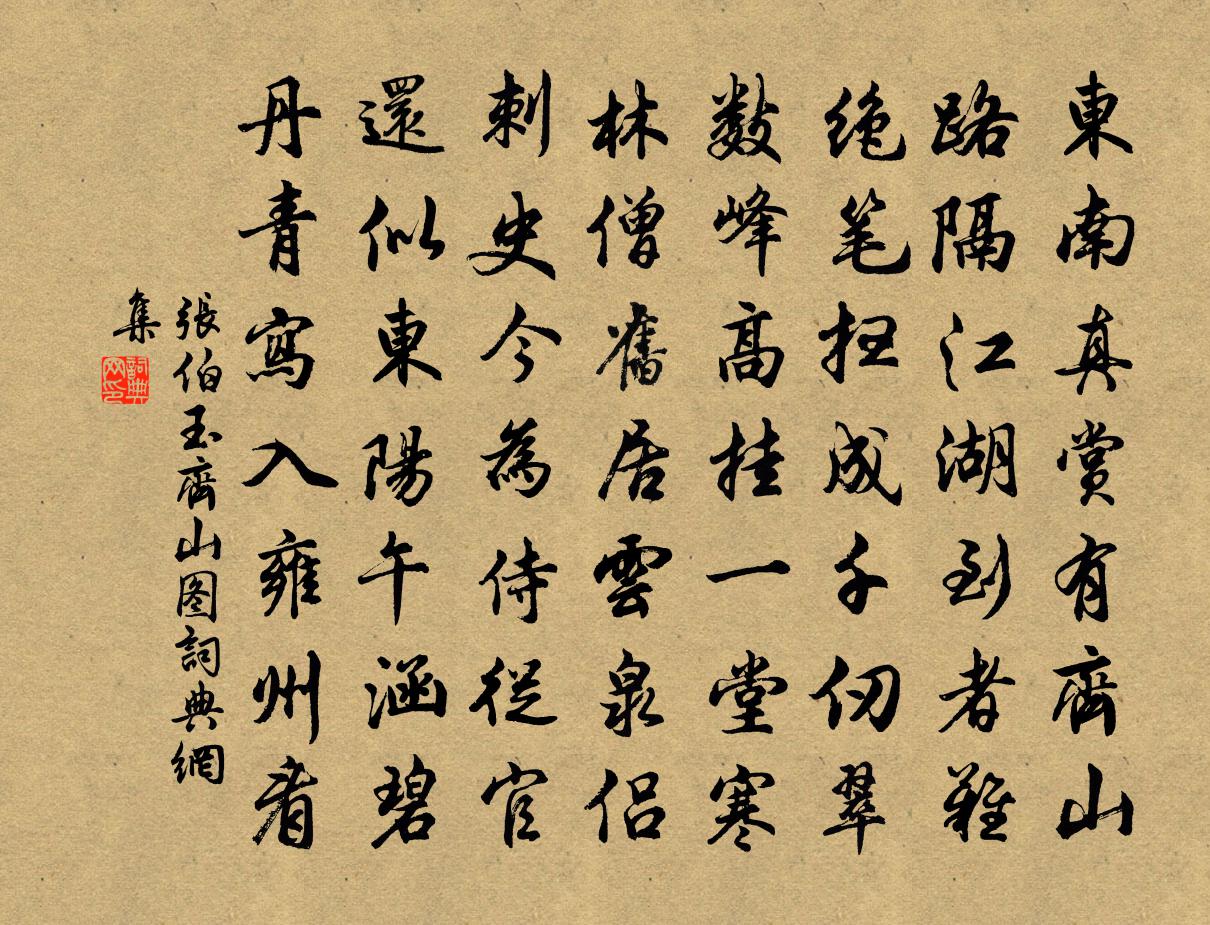 東南真賞有齊山
路隔江湖到者難
绝笔扫成千仞翠
數峰高挂一堂寒
林僧舊居雲泉侣
刺史今為侍從官
還似東陽午涵碧
丹青寫入雍州看
張伯玉齊山图詞典網
集
詞典网印